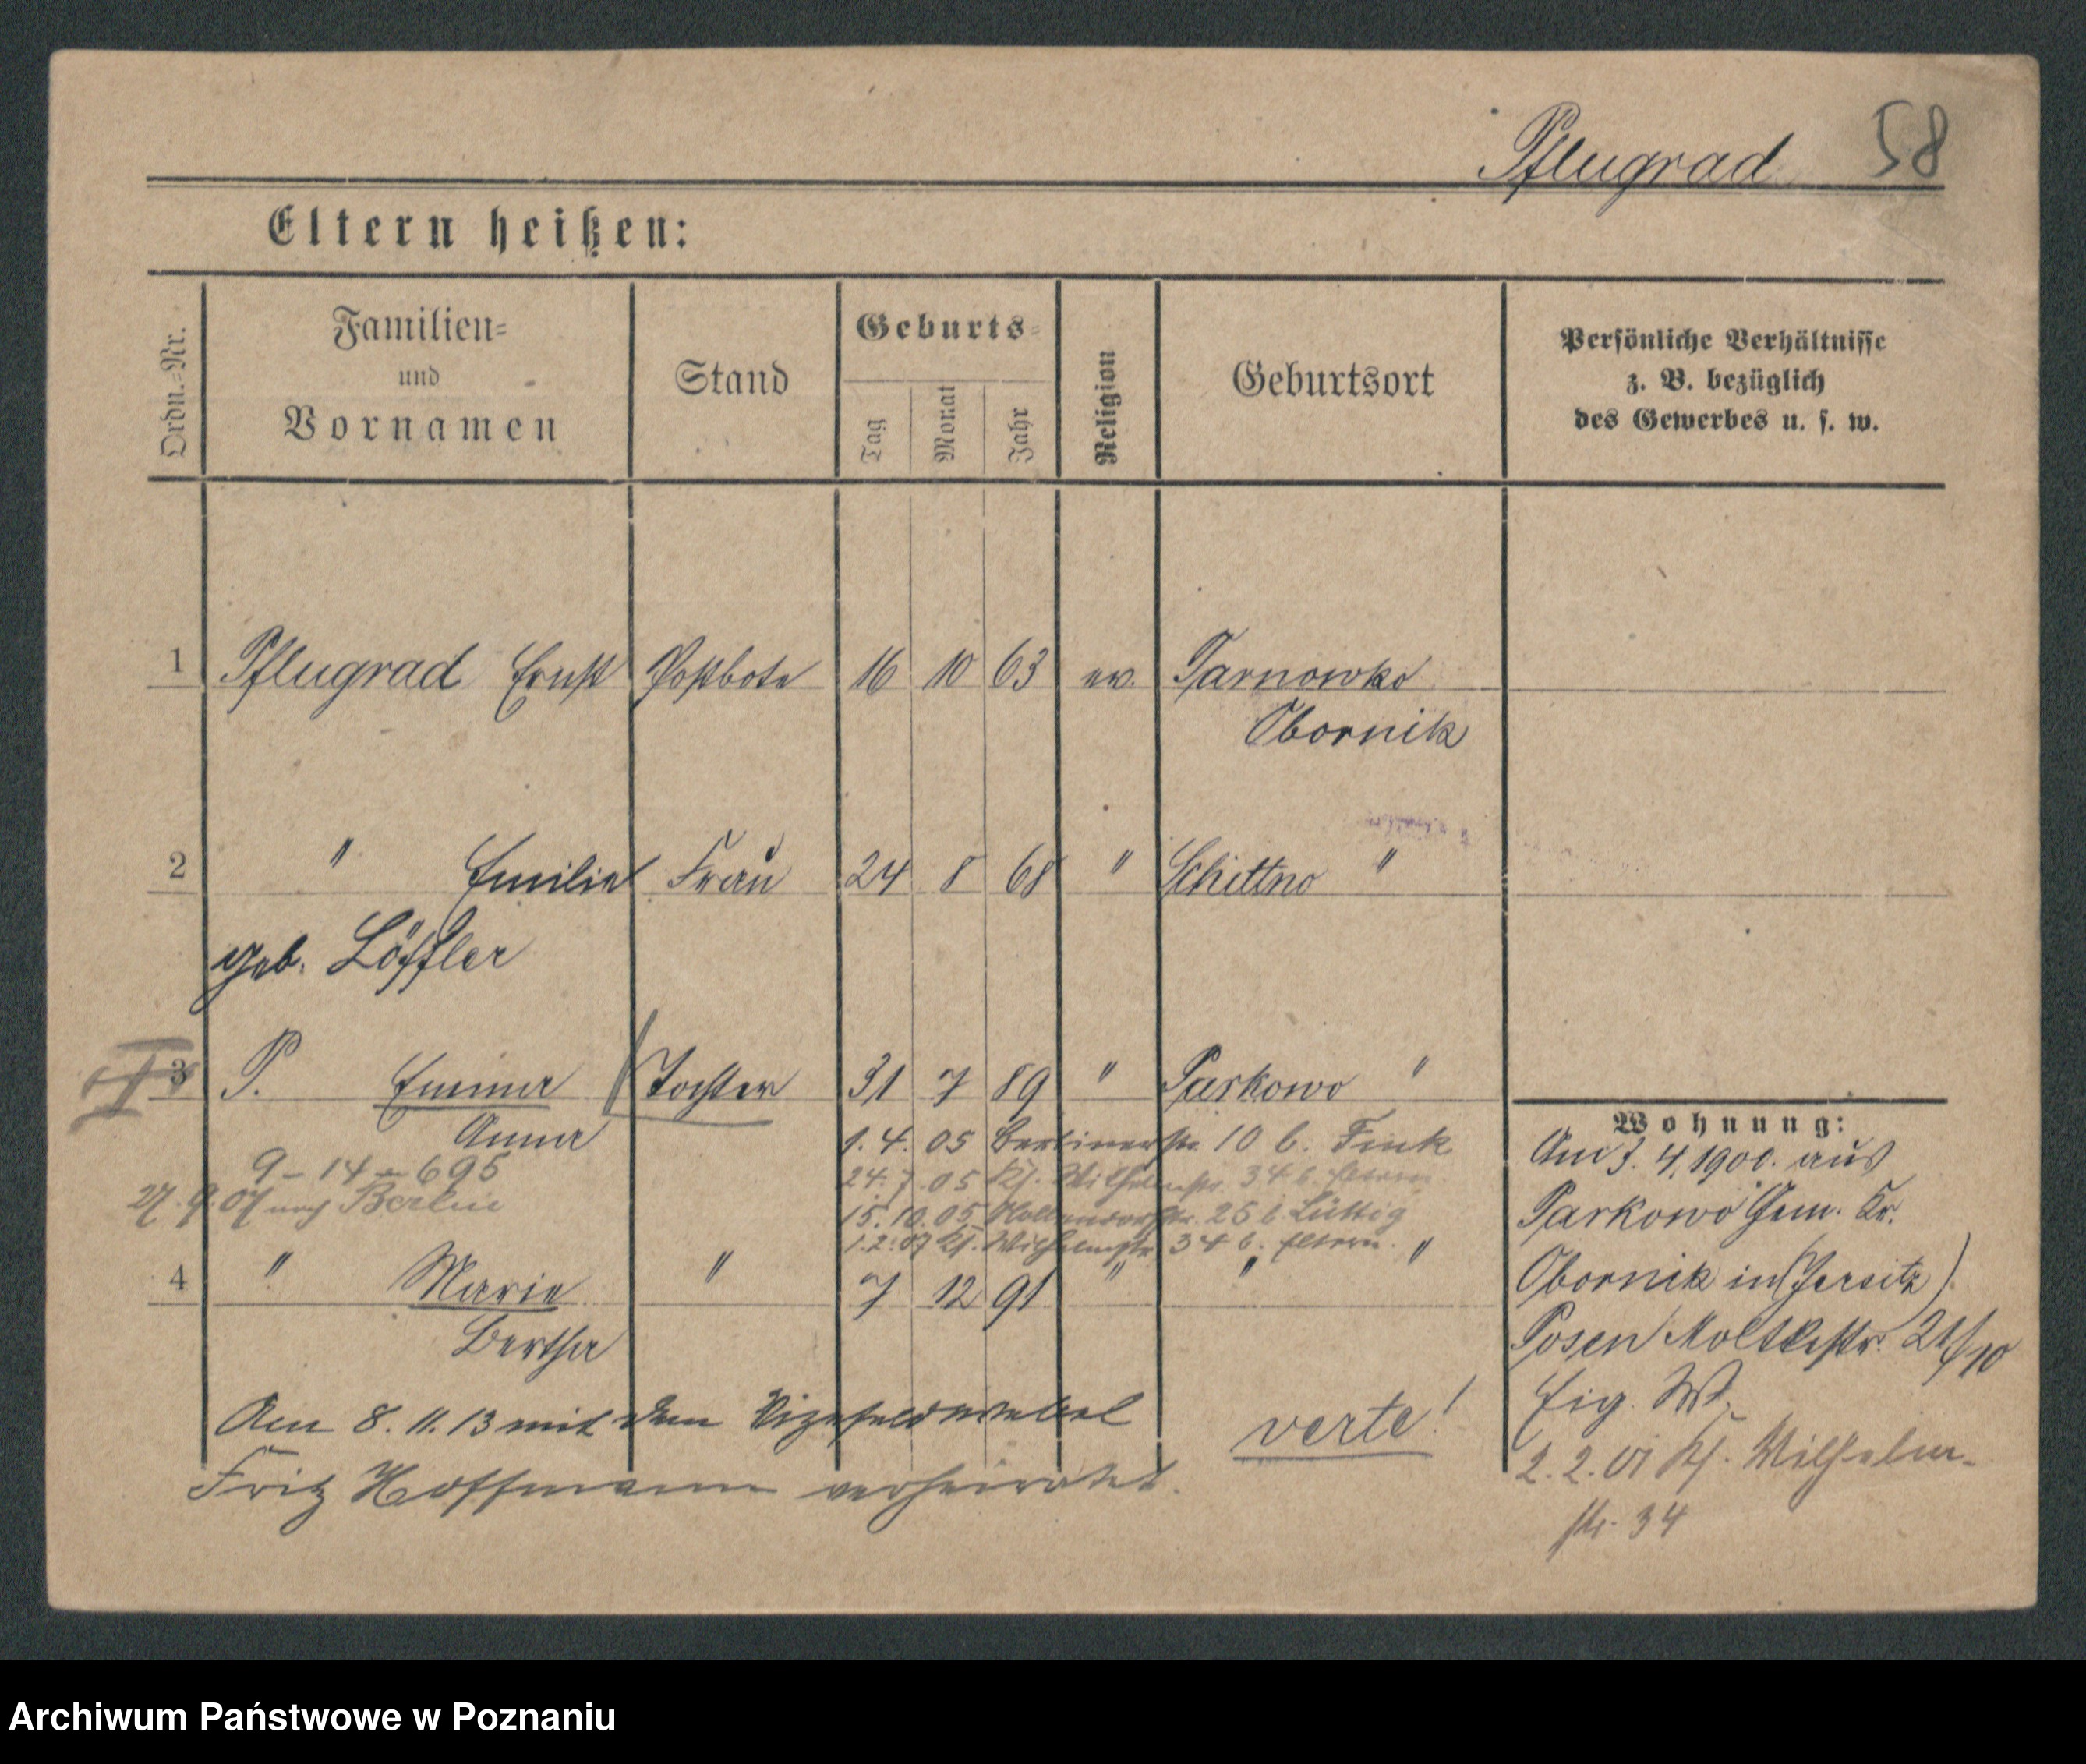 Pflugrad 58
Eltern heißen:
Ordn.-Nr.
Familien- und Vornamen
Stand
Geburts-
Tag Monat Jahr
Religion
Geburtsort
Persönliche Verhältnisse
z. B. bezüglich
des Gewerbes u. s. w.
1 Pflugrad Ernst Postbote 16 10 63 ev. Tarnowko
Obornik
2 " Emilie Frau 24 8 68 " Schittno "
geb. Löffler
3 P. Emma Tochter 31 7 89 " Parkowo "
Anna
1. 4. 05 Berlinerstr. 10 b. Fink
9-14-695
24. 7. 05 Kl. Wilhelmstr. 34 b. Eltern
27. 9. 07 nach Berlin
15. 10. 05 25 b. Lüttig
1. 2. 07 Kl. Wilhelmstr. 34 b. Eltern.
4 " Marie " 7 12 91 " " "
Bertha
Am 8. 11. 13 mit dem Vizefeldwebel
Fritz Hoffmann verheiratet.
verte!
Wohnung:
Am 3. 4. 1900. aus
Parkowo Gem. Kr.
Obornik in (Jersitz)
Posen Moltkestr. 21/10
Eig. W.
2. 2. 01 Kl. Wilhelm-
str. 34
Archiwum Państwowe w Poznaniu